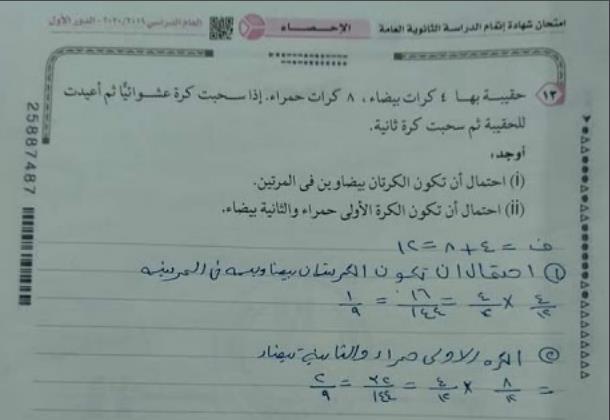 امتحان شهادة إتمام الدراسة الثانوية العامة
الإحصاء
العام الدراسى ٢٠٢٠/٢٠١٩ - الدور الأول
١٣ حقيبة بها ٤ كرات بيضاء ، ٨ كرات حمراء. إذا سحبت كرة عشوائيًّا ثم أعيدت
للحقيبة ثم سحبت كرة ثانية.
أوجد:
(i) احتمال أن تكون الكرتان بيضاوين فى المرتين.
(ii) احتمال أن تكون الكرة الأولى حمراء والثانية بيضاء.
ف = ٤ + ٨ = ١٢
① احتمال ان تكون الكرتان بيضاوين فى المرتين
٤/١٢ × ٤/١٢ = ١٦/١٤٤ = ١/٩
② الكره الاولى حمراء والثانية بيضاء
= ٨/١٢ × ٤/١٢ = ٣٢/١٤٤ = ٢/٩
25887487